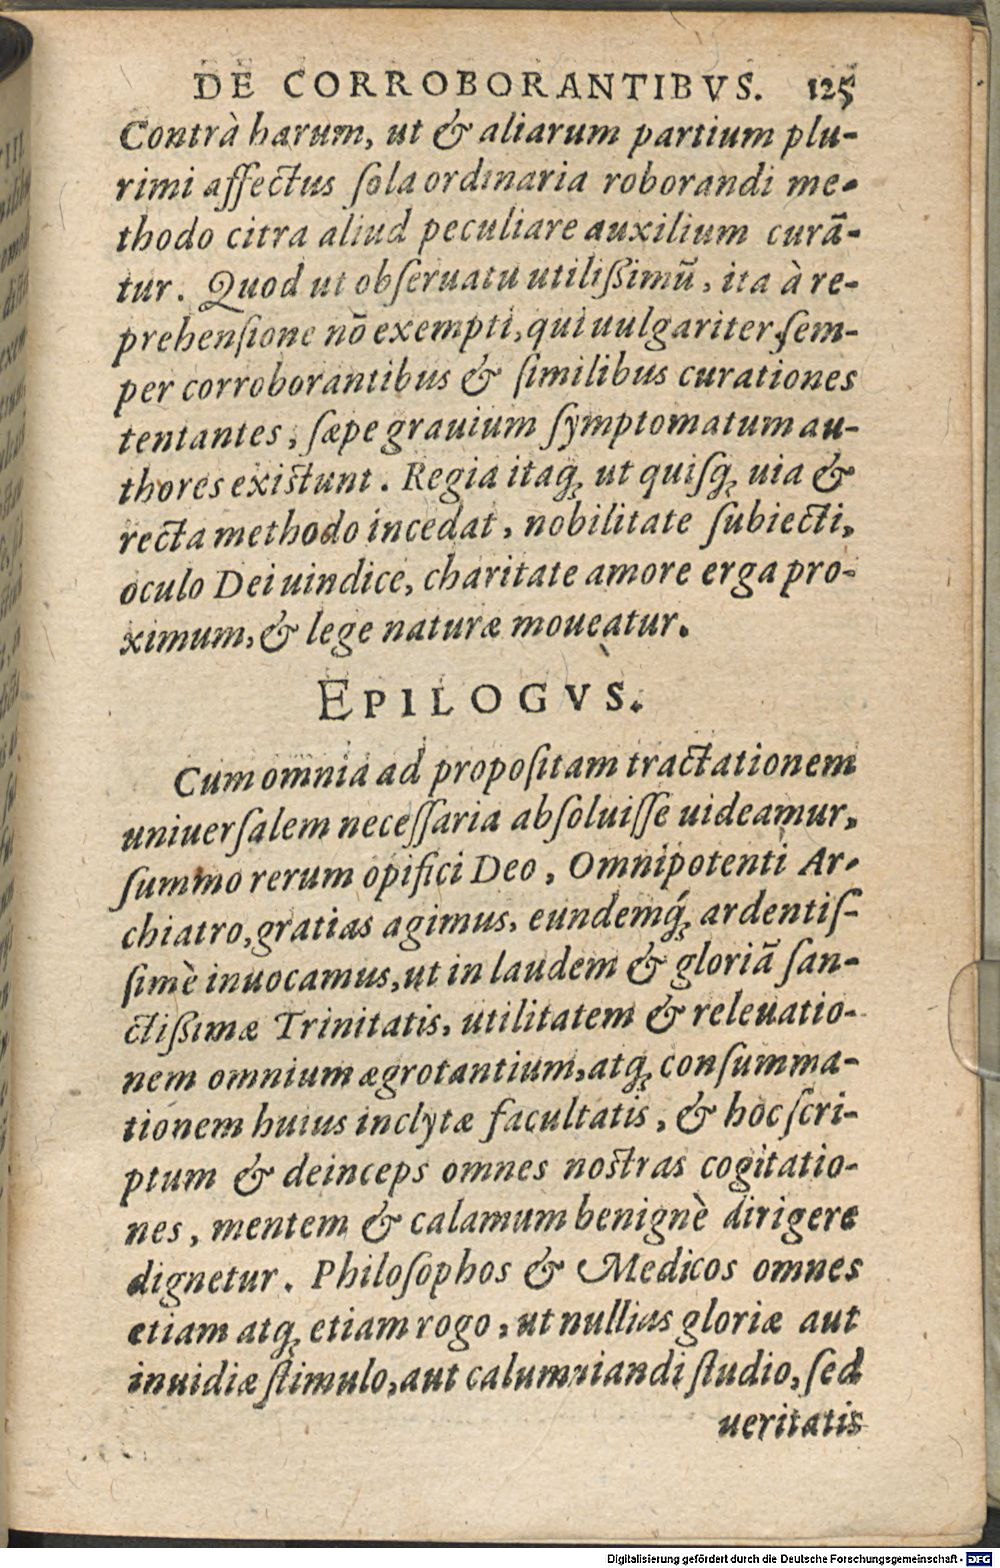 DE CORROBORANTIBVS. 125
Contrà harum, ut & aliarum partium plu-
rimi affectus ſola ordinaria roborandi me-
thodo citra aliud peculiare auxilium curã-
tur. Quod ut obſeruatu utilißimũ, ita à re-
prehenſione nõ exempti, qui uulgariter ſem-
per corroborantibus & ſimilibus curationes
tentantes, ſæpe grauium ſymptomatum au-
thores exiſtunt. Regia itaq́; ut quiſq́; uia &
recta methodo incedat, nobilitate ſubiecti,
oculo Dei uindice, charitate amore erga pro-
ximum, & lege naturæ moueatur.
EPILOGVS.
Cum omnia ad propoſitam tractationem
uniuerſalem neceſſaria abſoluiſſe uideamur,
ſummo rerum opifici Deo, Omnipotenti Ar-
chiatro, gratias agimus, eundemq́; ardentiſ-
ſimè inuocamus, ut in laudem & gloriã ſan-
ctißimæ Trinitatis, utilitatem & releuatio-
nem omnium ægrotantium, atq; conſumma-
tionem huius inclytæ facultatis, & hoc ſcri-
ptum & deinceps omnes noſtras cogitatio-
nes, mentem & calamum benignè dirigere
dignetur. Philoſophos & Medicos omnes
etiam atq; etiam rogo, ut nullius gloriæ aut
inuidiæ ſtimulo, aut calumniandi ſtudio, ſed
ueritatis
Digitalisierung gefördert durch die Deutsche Forschungsgemeinschaft - DFG